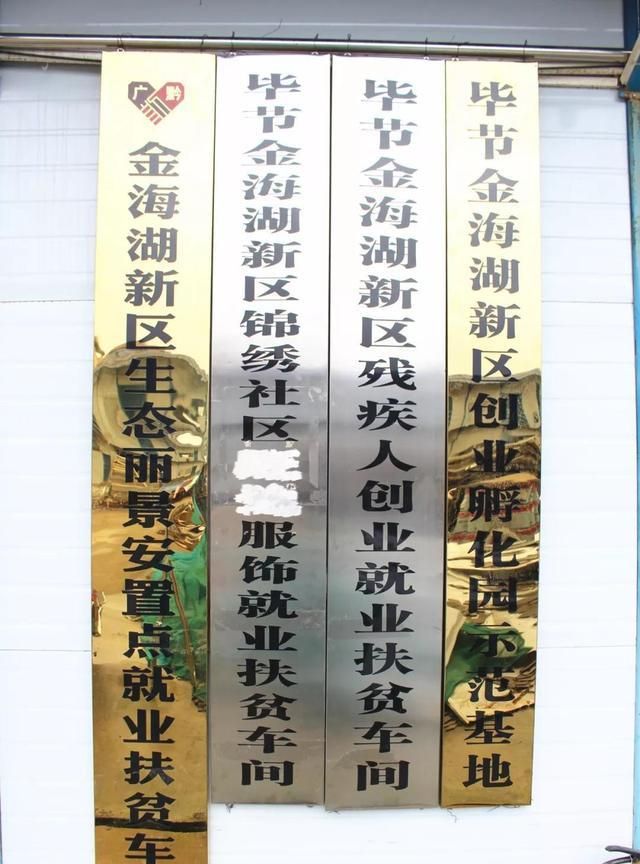 广 黔
金海湖新区生态丽景安置点就业扶贫车
毕节金海湖新区锦绣社区
服饰就业扶贫车间
毕节金海湖新区残疾人创业就业扶贫车间
毕节金海湖新区创业孵化园示范基地